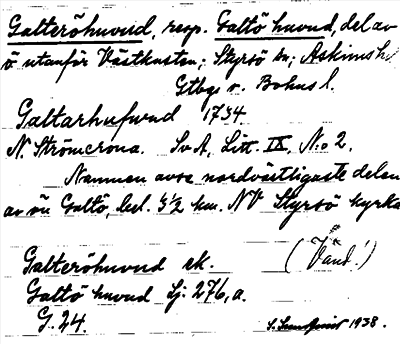 Galteröhuvud, resp. Galtö huvud, del av
ö utanför Västkusten; Styrsö sn; Askims hd
Gtbgs o. Bohus l.
Galtarhufwud 1734
N. Strömcrona. SvA, Litt. IX, No 2.
Namnen avse nordvästligaste delen
av ön Galtö, bel. 3½ km. NV Styrsö kyrka
Galteröhuvud ek.
(Vänd!)
Galtö huvud Sj. 276, a.
G. 24.
S. Sundqvist 1938.